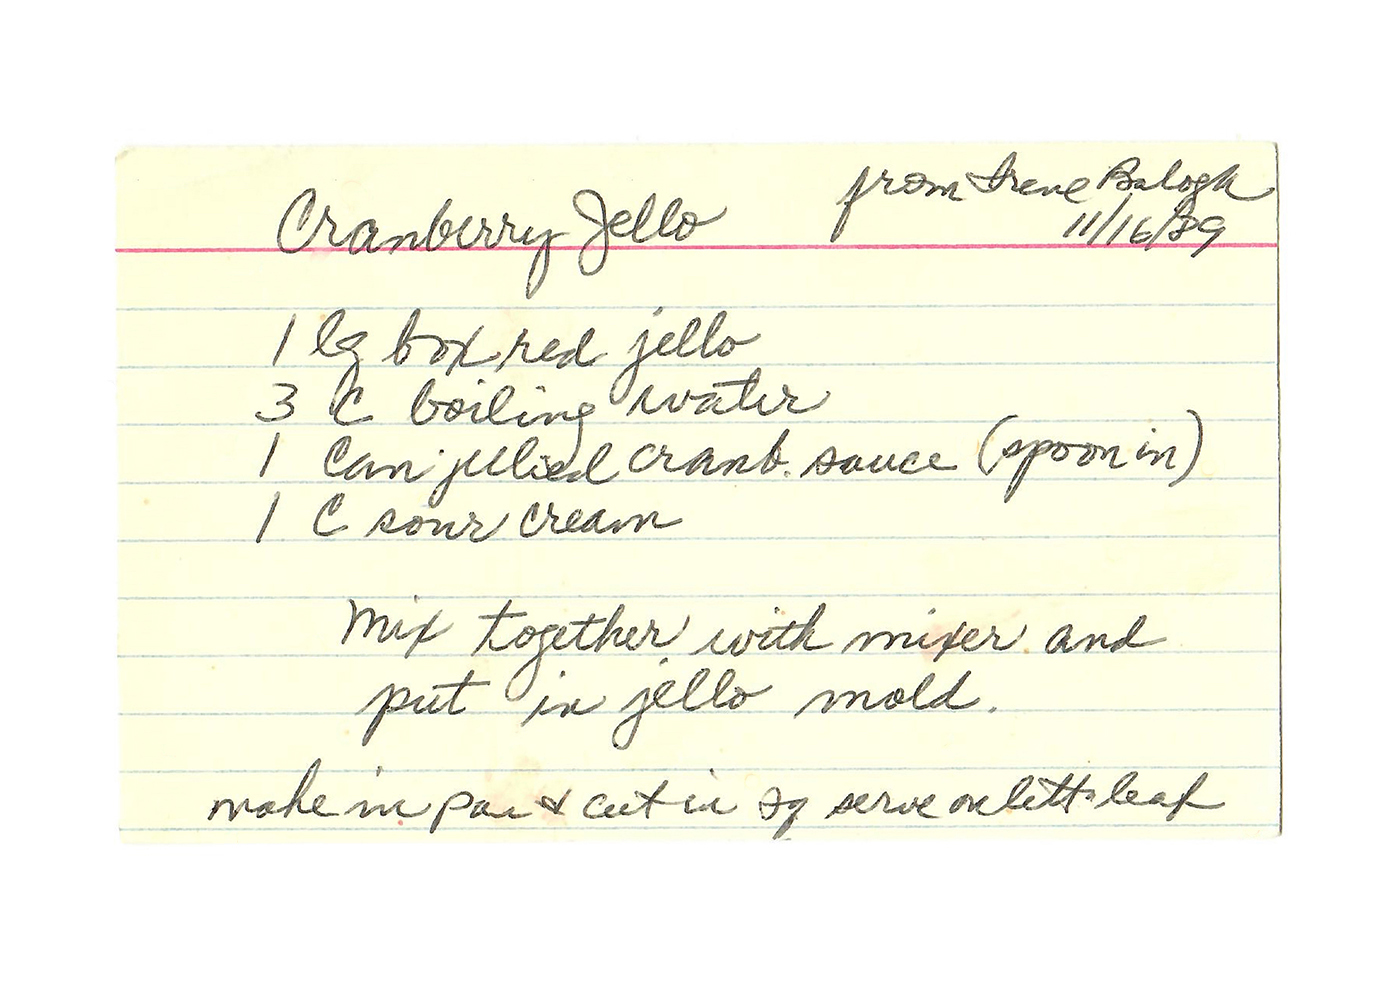 from Irene Balogh
Cranberry Jello
11/16/89
1 lg box red jello
3 C boiling water
1 Can jellied cranb. sauce (spoon in)
1 C sour cream
Mix together with mixer and
put in jello mold.
make in pan & cut in sq serve on lett. leaf